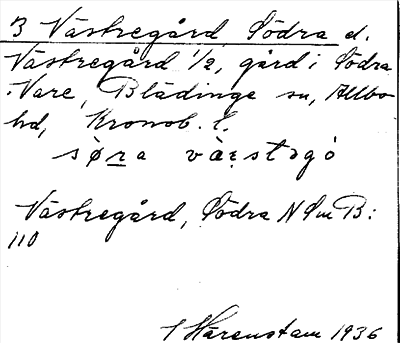 3 Västregård Södra d.
Västregård 1/2, gård i Södra
Vare, Blädinge sn, Allbo
hd, Kronob. l.
sø̀ra vàrstəgó
Västregård, Södra N Sm B:
110
I Härenstam 1936